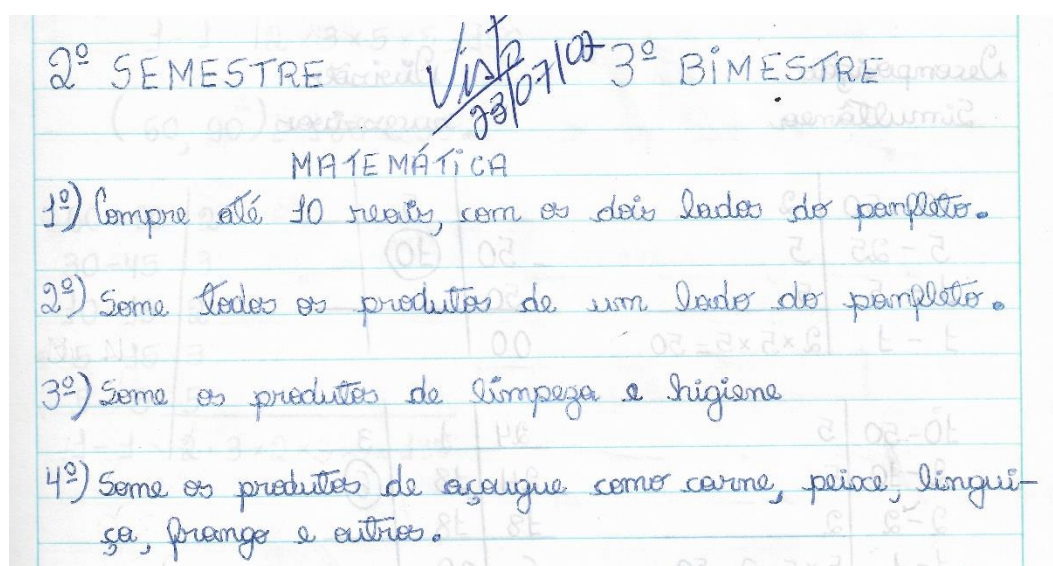 2º SEMESTRE Visto 23/07/07 3º BIMESTRE
MATEMÁTICA
1º) Compre até 10 reais, com os dois lados do panfleto.
2º) Some todos os produtos de um lado do panfleto.
3º) Some os produtos de limpeza e higiene
4º) Some os produtos de açougue como carne, peixe, lingui-
ça, frango e outros.